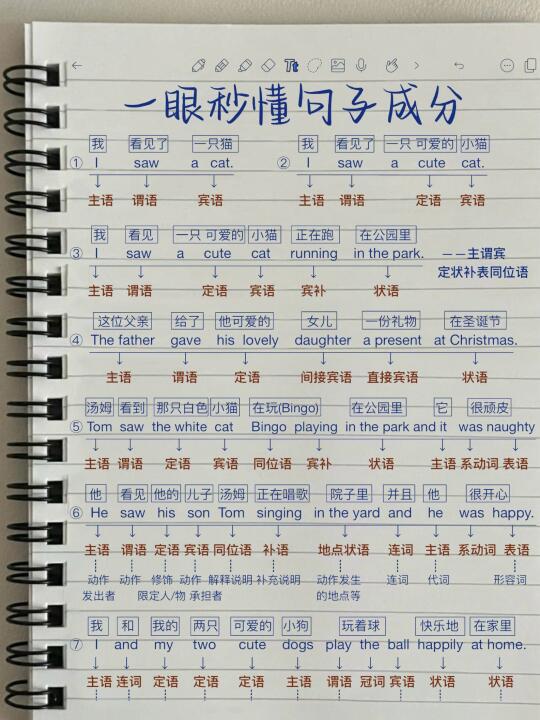 Tt
一眼秒懂句子成分
我 看见了 一只猫
① I saw a cat.
主语 谓语 宾语
我 看见了 一只 可爱的 小猫
② I saw a cute cat.
主语 谓语 定语 宾语
我 看见 一只 可爱的 小猫 正在跑 在公园里
③ I saw a cute cat running in the park.
主语 谓语 定语 宾语 宾补 状语
——主谓宾
定状补表同位语
这位父亲 给了 他可爱的 女儿 一份礼物 在圣诞节
④ The father gave his lovely daughter a present at Christmas.
主语 谓语 定语 间接宾语 直接宾语 状语
汤姆 看到 那只白色 小猫 在玩(Bingo) 在公园里 它 很顽皮
⑤ Tom saw the white cat Bingo playing in the park and it was naughty
主语 谓语 定语 宾语 同位语 宾补 状语 主语 系动词 表语
他 看见 他的 儿子 汤姆 正在唱歌 院子里 并且 他 很开心
⑥ He saw his son Tom singing in the yard and he was happy.
主语 谓语 定语 宾语 同位语 补语 地点状语 连词 主语 系动词 表语
动作 动作 修饰 动作 解释说明 补充说明 动作发生 连词 代词 形容词
发出者 限定人/物 承担者 的地点等
我 和 我的 两只 可爱的 小狗 玩着球 快乐地 在家里
⑦ I and my two cute dogs play the ball happily at home.
主语 连词 定语 定语 定语 主语 谓语 冠词 宾语 状语 状语